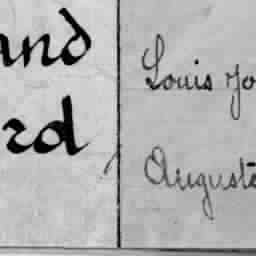 and
rd
Louis Jo
Auguste